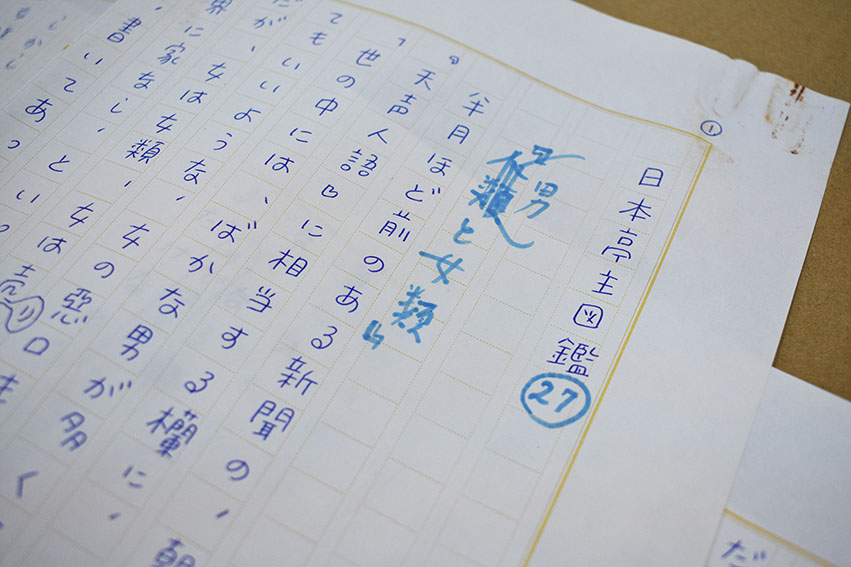 ①
日本亭主図鑑㉗
『男類と女類』
半月ほど前のある新聞の、朝
『天声人語』に相当する欄に、
「世の中には、ばかな男が多く
てもいいような、女の悪口
だが、女は女類、女は売り
界に家なし、とい
書いてあっ
だ